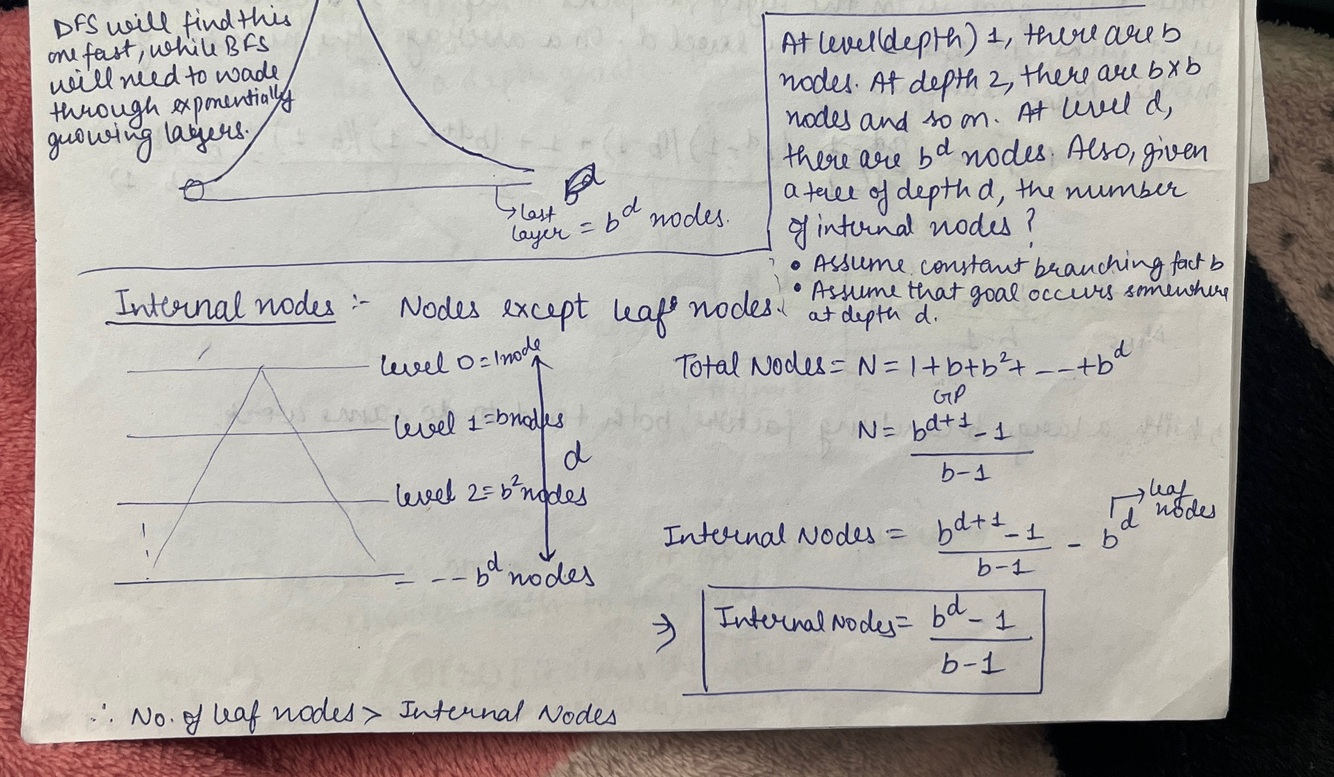 DFS will find this
one fast, while BFS
will need to wade
through exponentially
growing layers.
last
layer = b^d nodes.
At level(depth) 1, there are b
nodes. At depth 2, there are b×b
nodes and so on. At level d,
there are b^d nodes. Also, given
a tree of depth d, the number
of internal nodes ?
• Assume constant branching fact b
• Assume that goal occurs somewhere
at depth d.
Internal nodes :- Nodes except leaf nodes.
level 0 = 1 node
level 1 = b nodes
d
level 2 = b² nodes
= -- b^d nodes
Total Nodes = N = 1 + b + b² + --- + b^d
GP
N = b^(d+1) - 1
b-1
Internal Nodes = b^(d+1) - 1 - b^d → leaf nodes
b-1
⇒ Internal Nodes = b^d - 1
b-1
∴ No. of leaf nodes > Internal Nodes